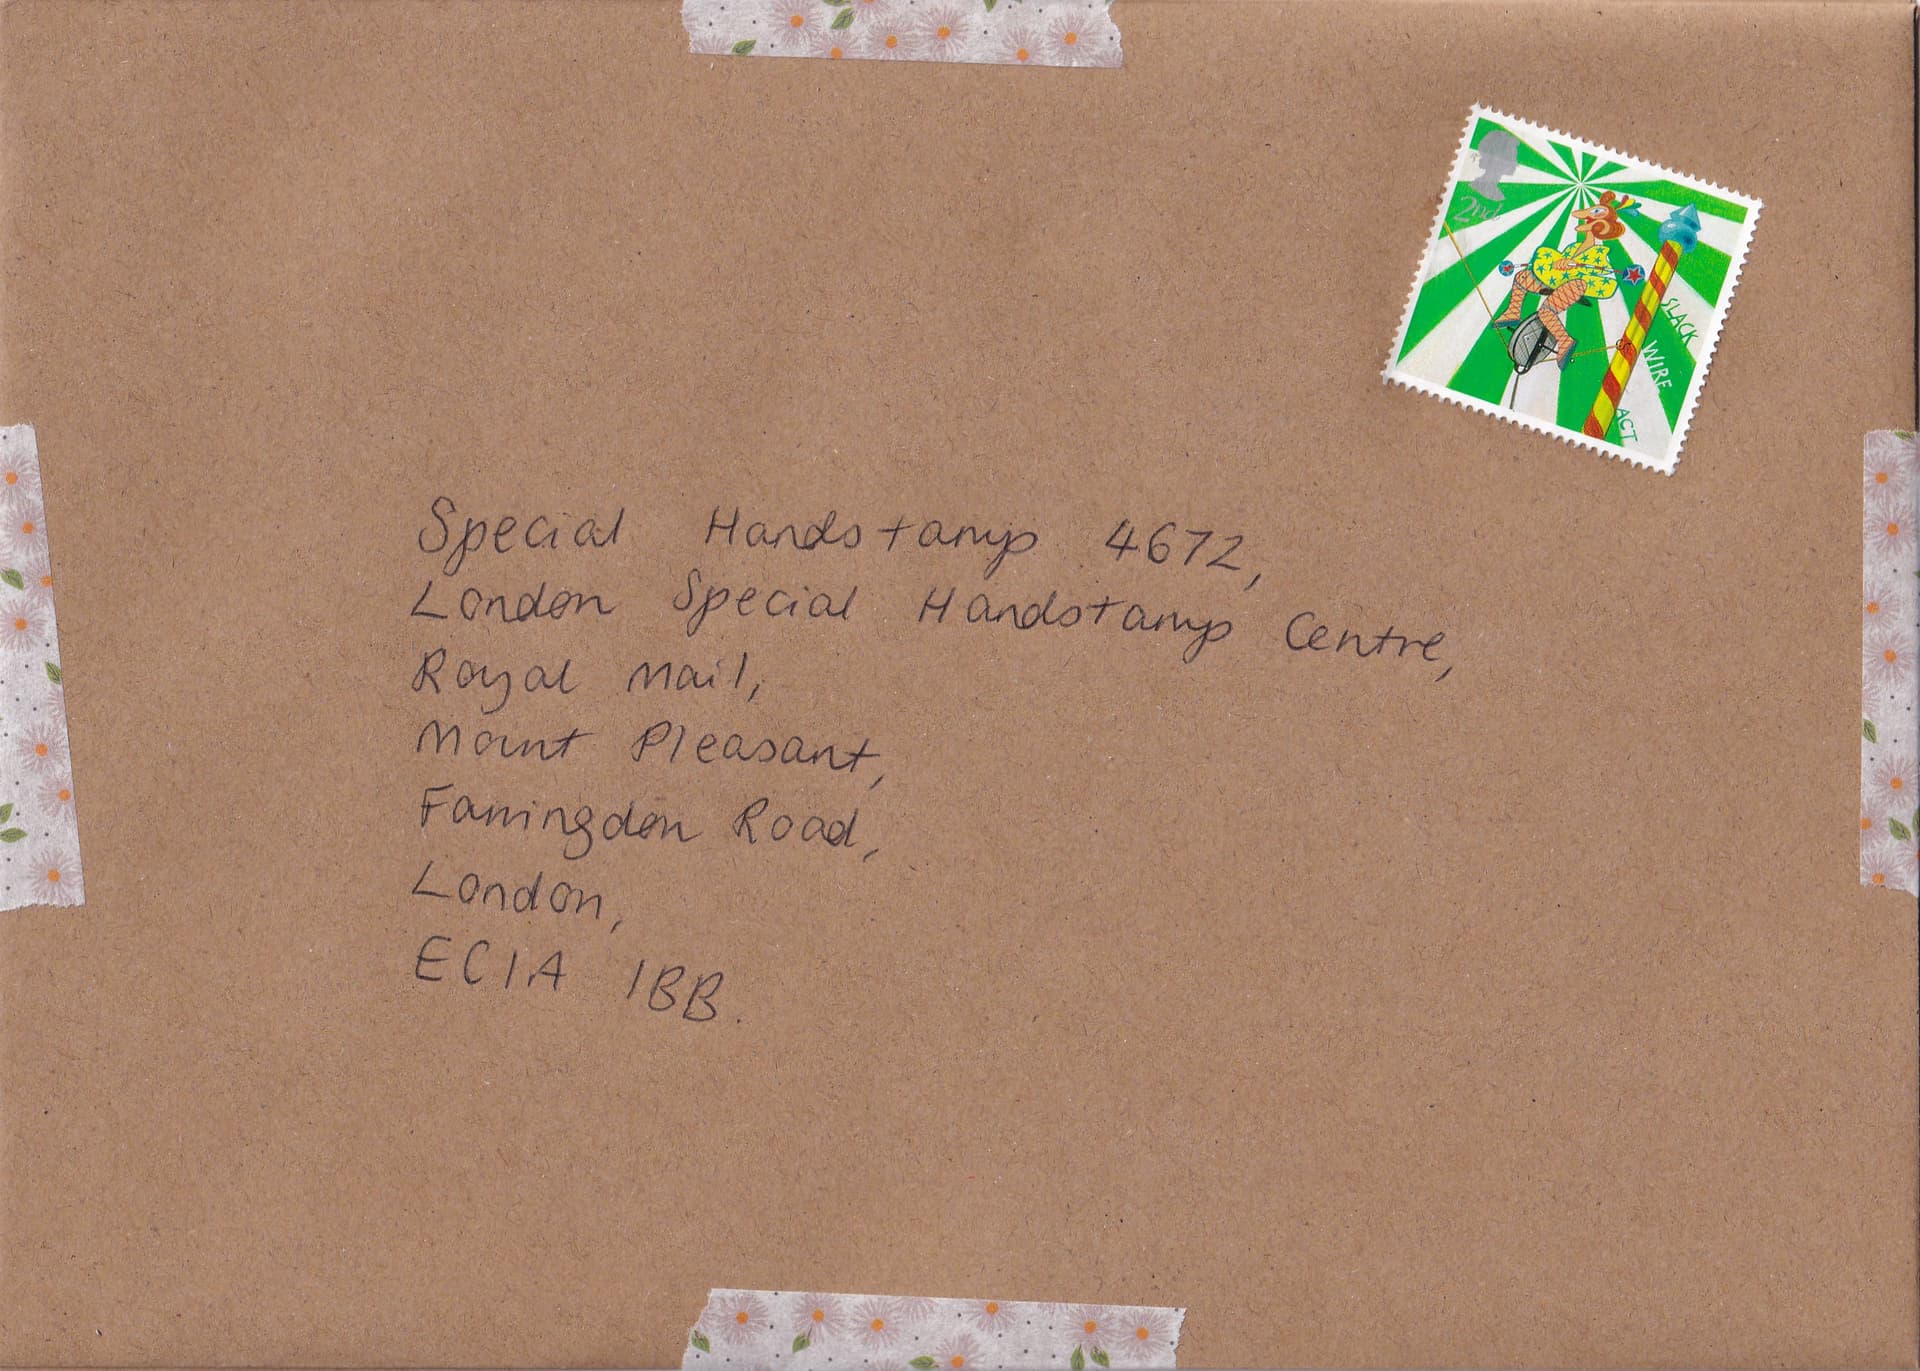 2nd
SLACK
WIRE
ACT
Special Handstamp 4672,
London Special Handstamp Centre,
Royal Mail,
Mount Pleasant,
Farringdon Road,
London,
EC1A 1BB.